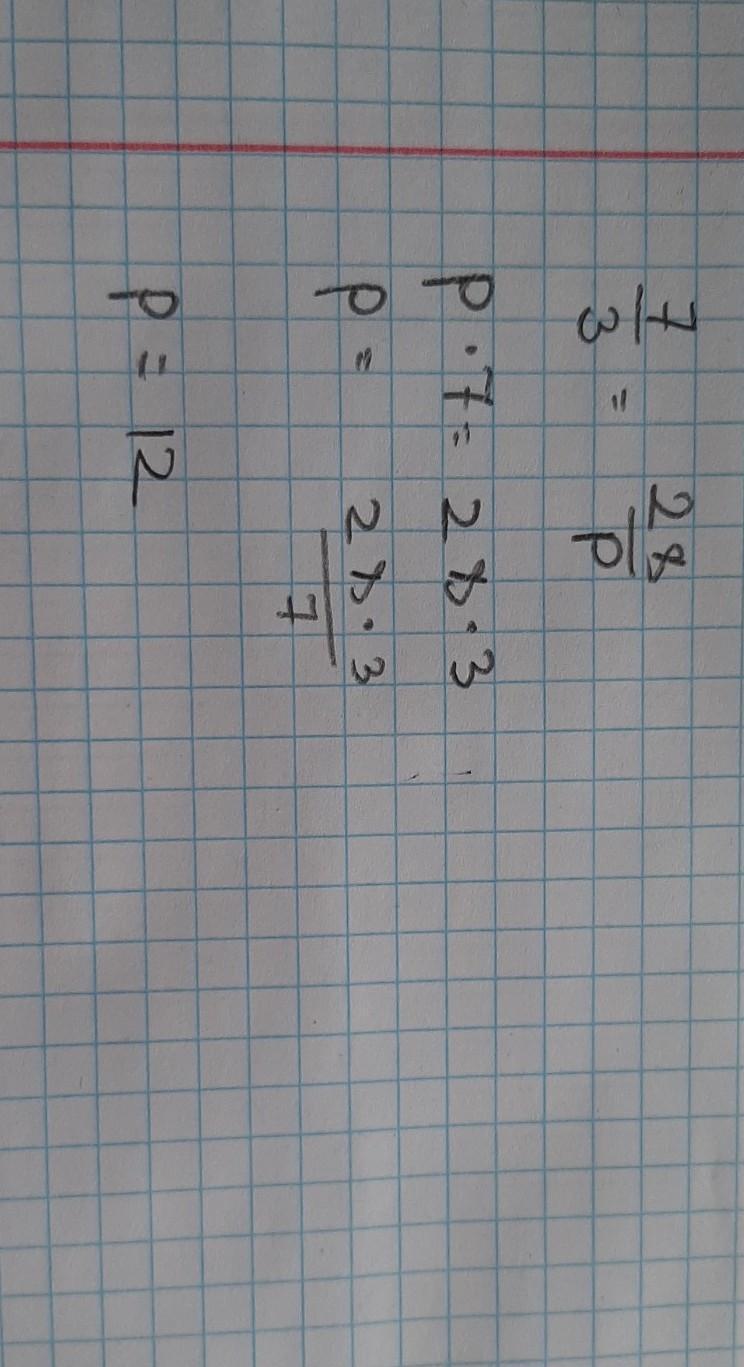 7/3 = 28/p
p · 7 = 28 · 3
p = 28 · 3/7
p = 12